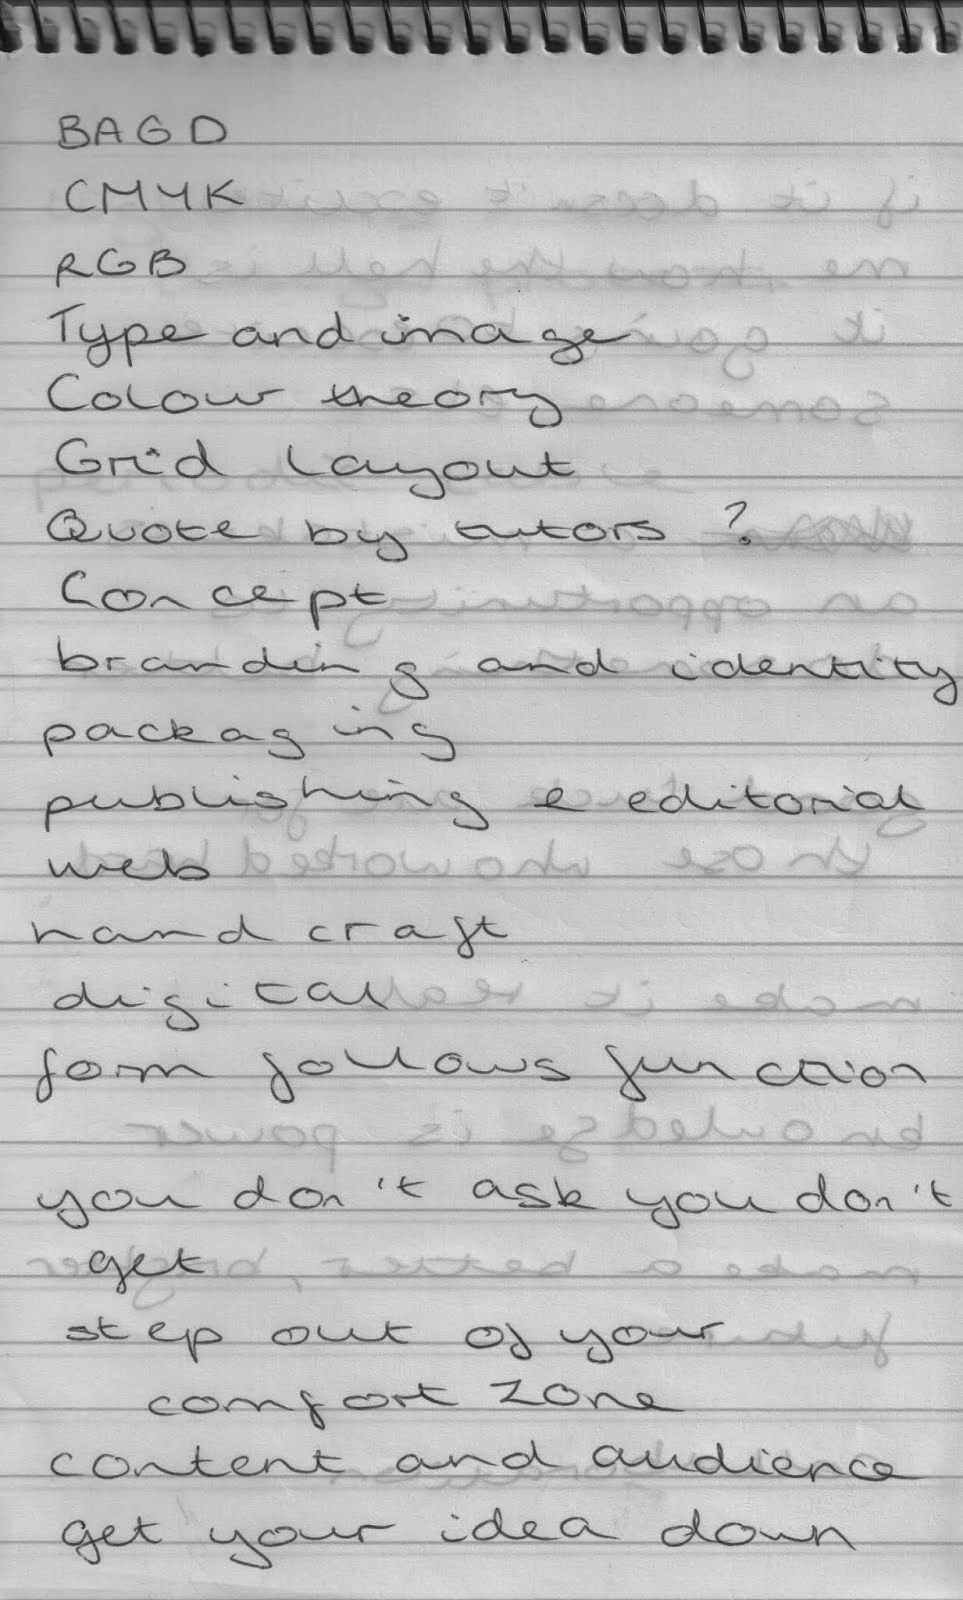 BAGD
CMYK
RGB
Type and image
Colour theory
Grid Layout
Quote by tutors ?
Concept
branding and identity
packaging
publishing e editorial
web
hand craft
digital
form follows function
you don't ask you don't
get
step out of your
comfort zone
content and audience
get your idea down